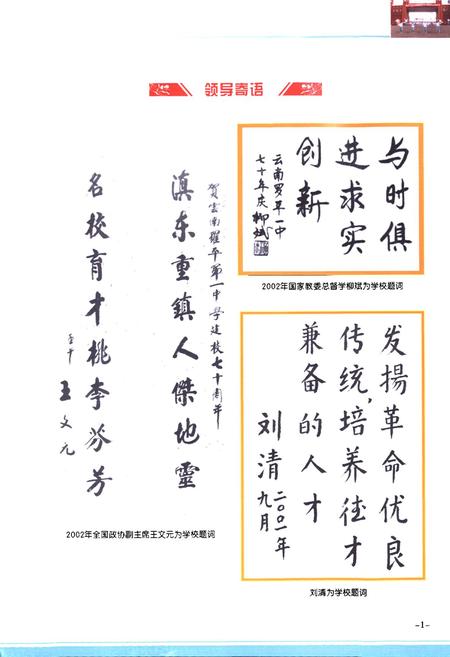 领导寄语
与时俱
进求实
创新
云南罗平一中
七十年庆 柳斌
2002年国家教委总督学柳斌为学校题词
贺云南罗平第一中学建校七十周年
滇东重鎮人傑地靈
名校育才桃李芬芳
壬午 王文元
2002年全国政协副主席王文元为学校题词
发揚革命优良
传统,培养德才
兼备的人才
刘清
二〇〇一年
九月
刘清为学校题词
-1-